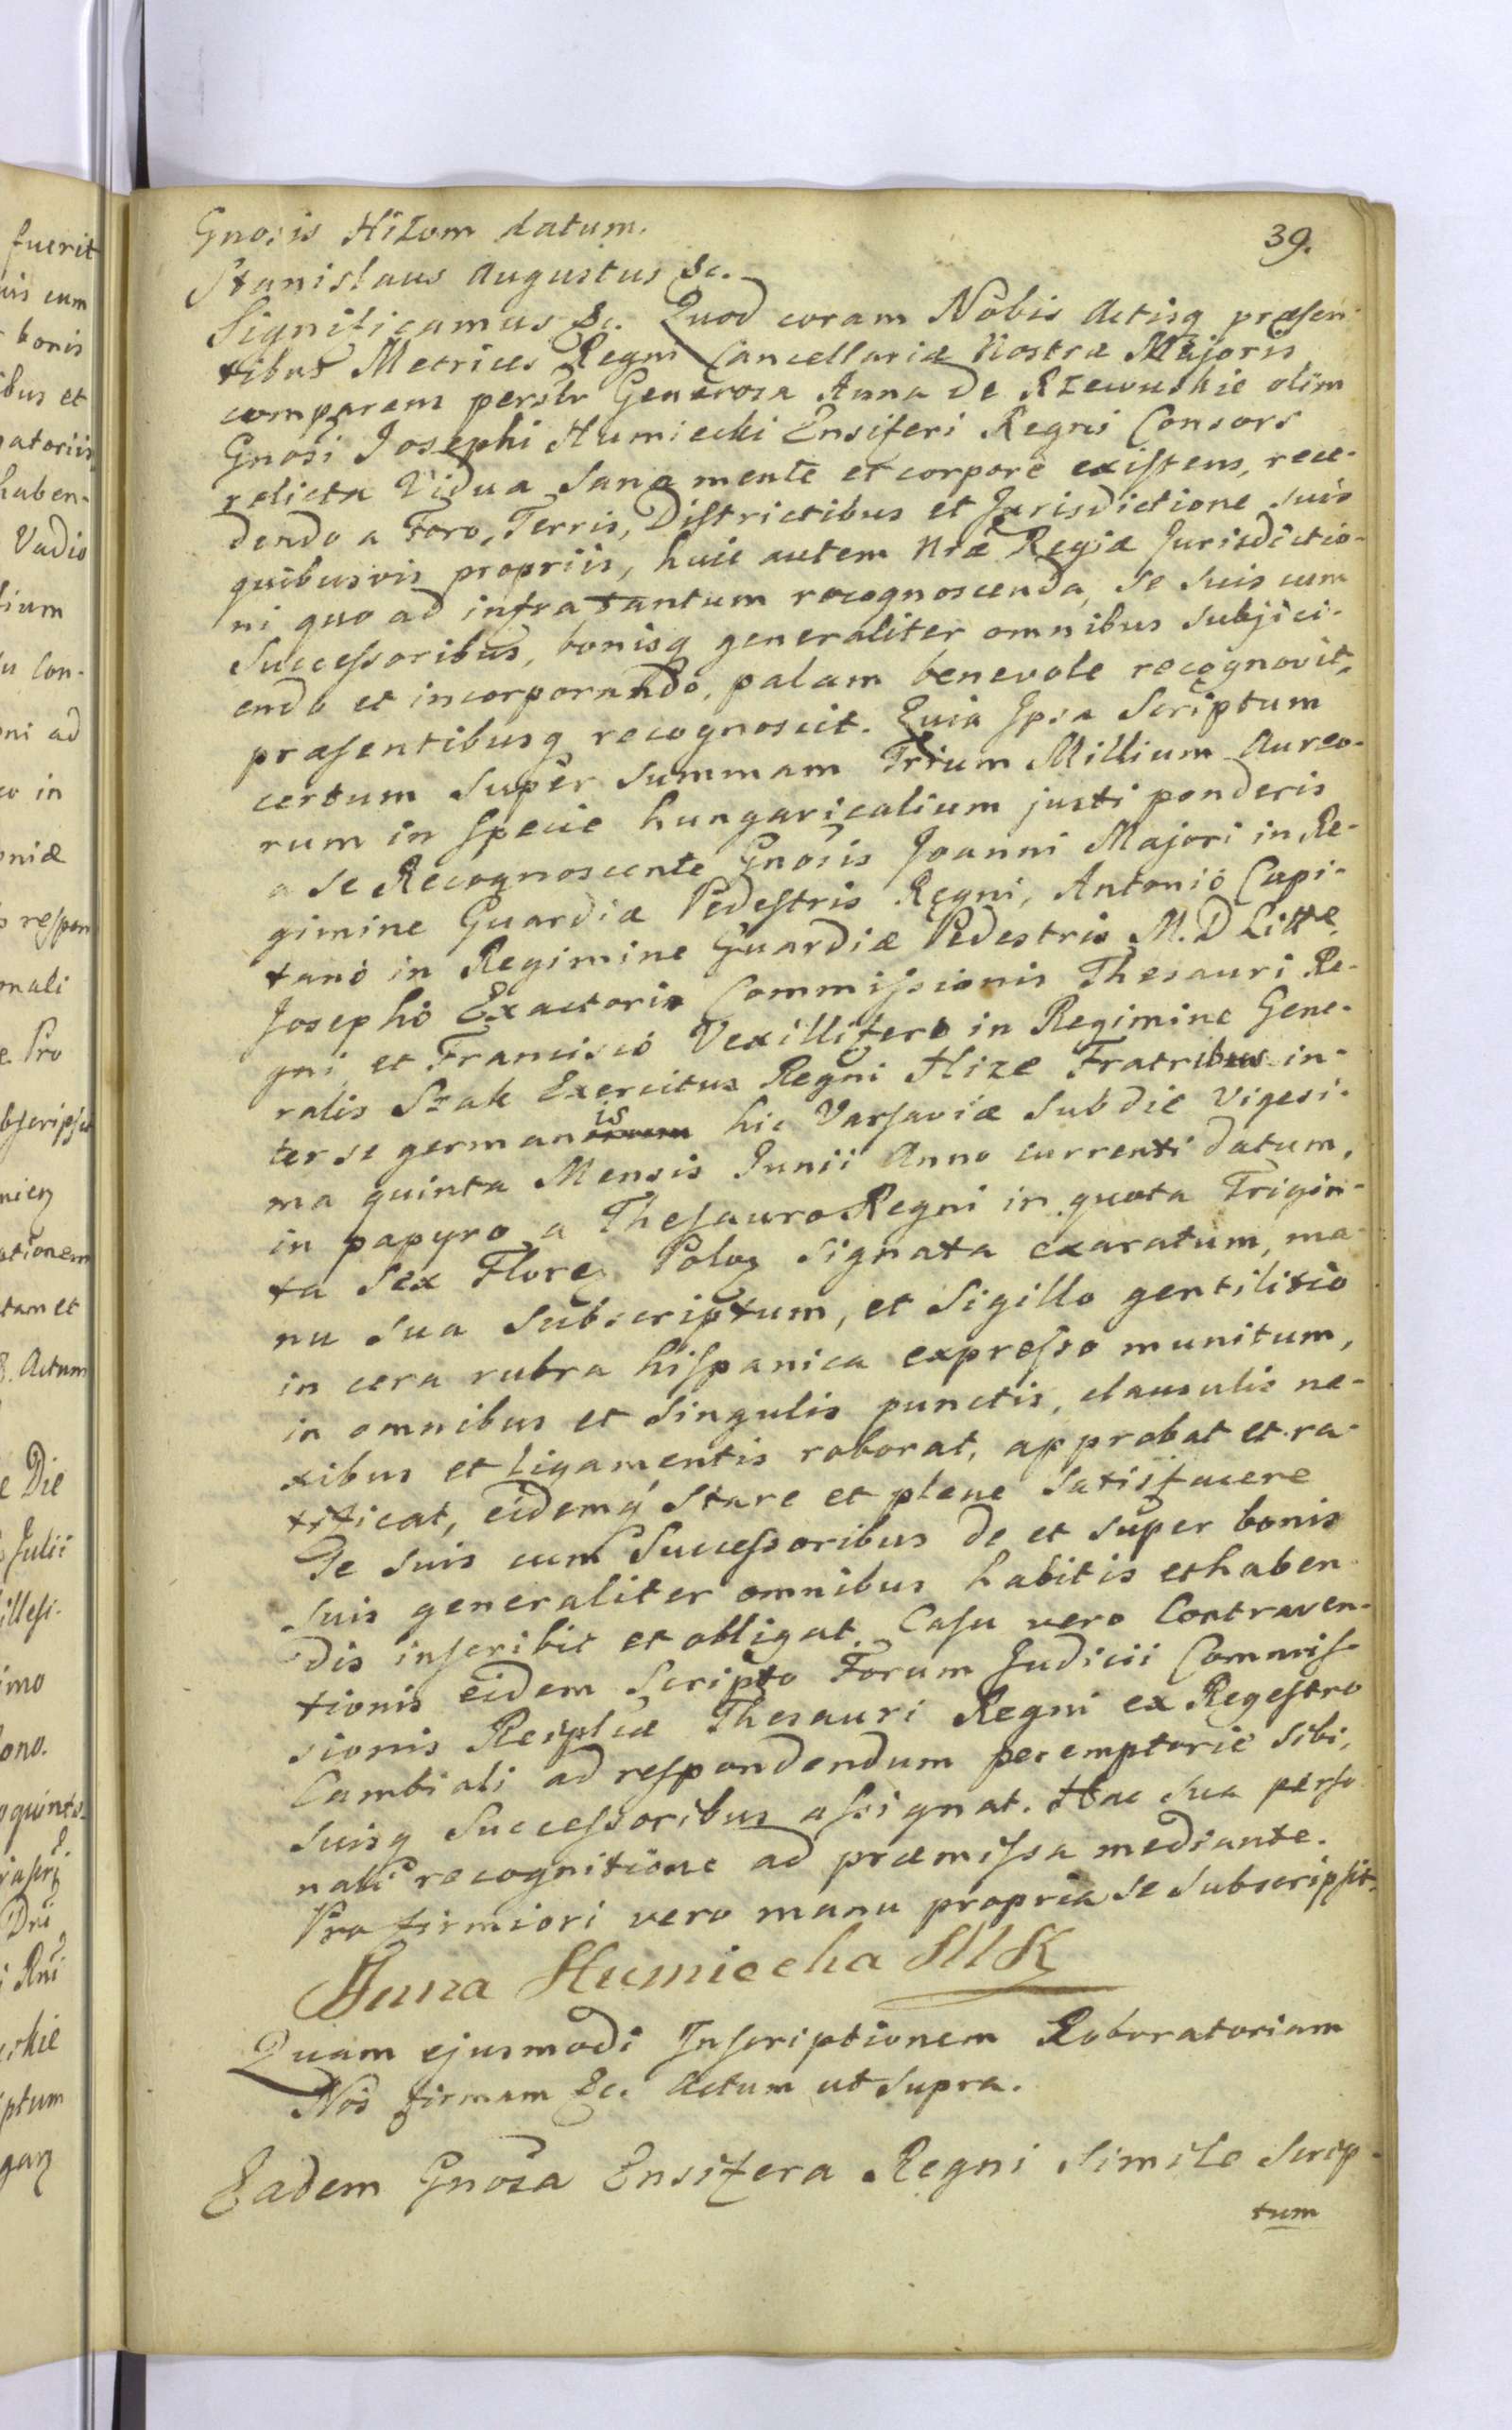 Gnosis Hizom datum.
39.
Stanislaus Augustus &c.
Significamus &c. Quod coram Nobis Actisq præsen-
tibus Metrices Regni Cancellariæ Nostræ Majoris
comparens persłr Generosa Anna de Rzewuskie olim
Gnosi Josephi Humiecki Ensiferi Regni Consors
relicta Vidua Sana mente et corpore existens, rece-
dendo a Foro, Terris, Districtibus et Jurisdictione suis
quibusvis propriis, huic autem Nræ Regiæ Jurisdictio-
ni quo ad infra tantum recognoscenda, Se Suis cum
Successoribus, bonisq generaliter omnibus subjici-
endo et incorporando, palam benevole recognovit,
præsentibusq recognoscit. Quia Ipsa Scriptum
certum super Summam Trium Millium Aureo-
rum in specie hungaricalium justi ponderis
a se Recognoscente Gnosis Joanni Majori in Re-
gimine Guardiæ Pedestris Regni, Antonio Capi-
tano in Regimine Guardiæ Pedestris M. D Litte,
Josepho Exactoris Commissionis Thesauri Re-
gni et Francisco Vexillifero in Regimine Gene-
ralis Exercitus Regni Hize Fratribus in-
ter se germanis hic Varsaviæ sub die vigesi-
ma quinta Mensis Junii Anno currenti datum,
in papyro a Thesauro Regni in quota Trigin-
ta Sex Flore Polog signata exaratum, ma-
nu sua subscriptum, et Sigillo gentilitio
in cera rubra hispanica expresso munitum,
in omnibus et singulis punctis, clausulis ne-
xibus et Ligamentis roborat, approbat et ra-
tificat, eidemq Stare et plene Satisfacere
Se suis cum Successoribus de et super bonis
suis generaliter omnibus habitis et haben-
dis inscribit et obligat. Casu vero Contraven-
tionis eidem Scripto Forum Judicii Commis-
sionis Reiplcæ Thesauri Regni ex Regestro
Cambiali ad respondendum peremptorie sibi,
suisq Successoribus assignat. Hac sua perso
nali recognitione ad præmissa mediante.
Pro firmiori vero manu propria se subscripsit,
Anna Humiecka MK
Quam ejusmodi Inscriptionem Roboratoriam
Nos firmam &c. Actum ut supra.
Eadem Gnosa Ensifera Regni Simile Scrip-
tum